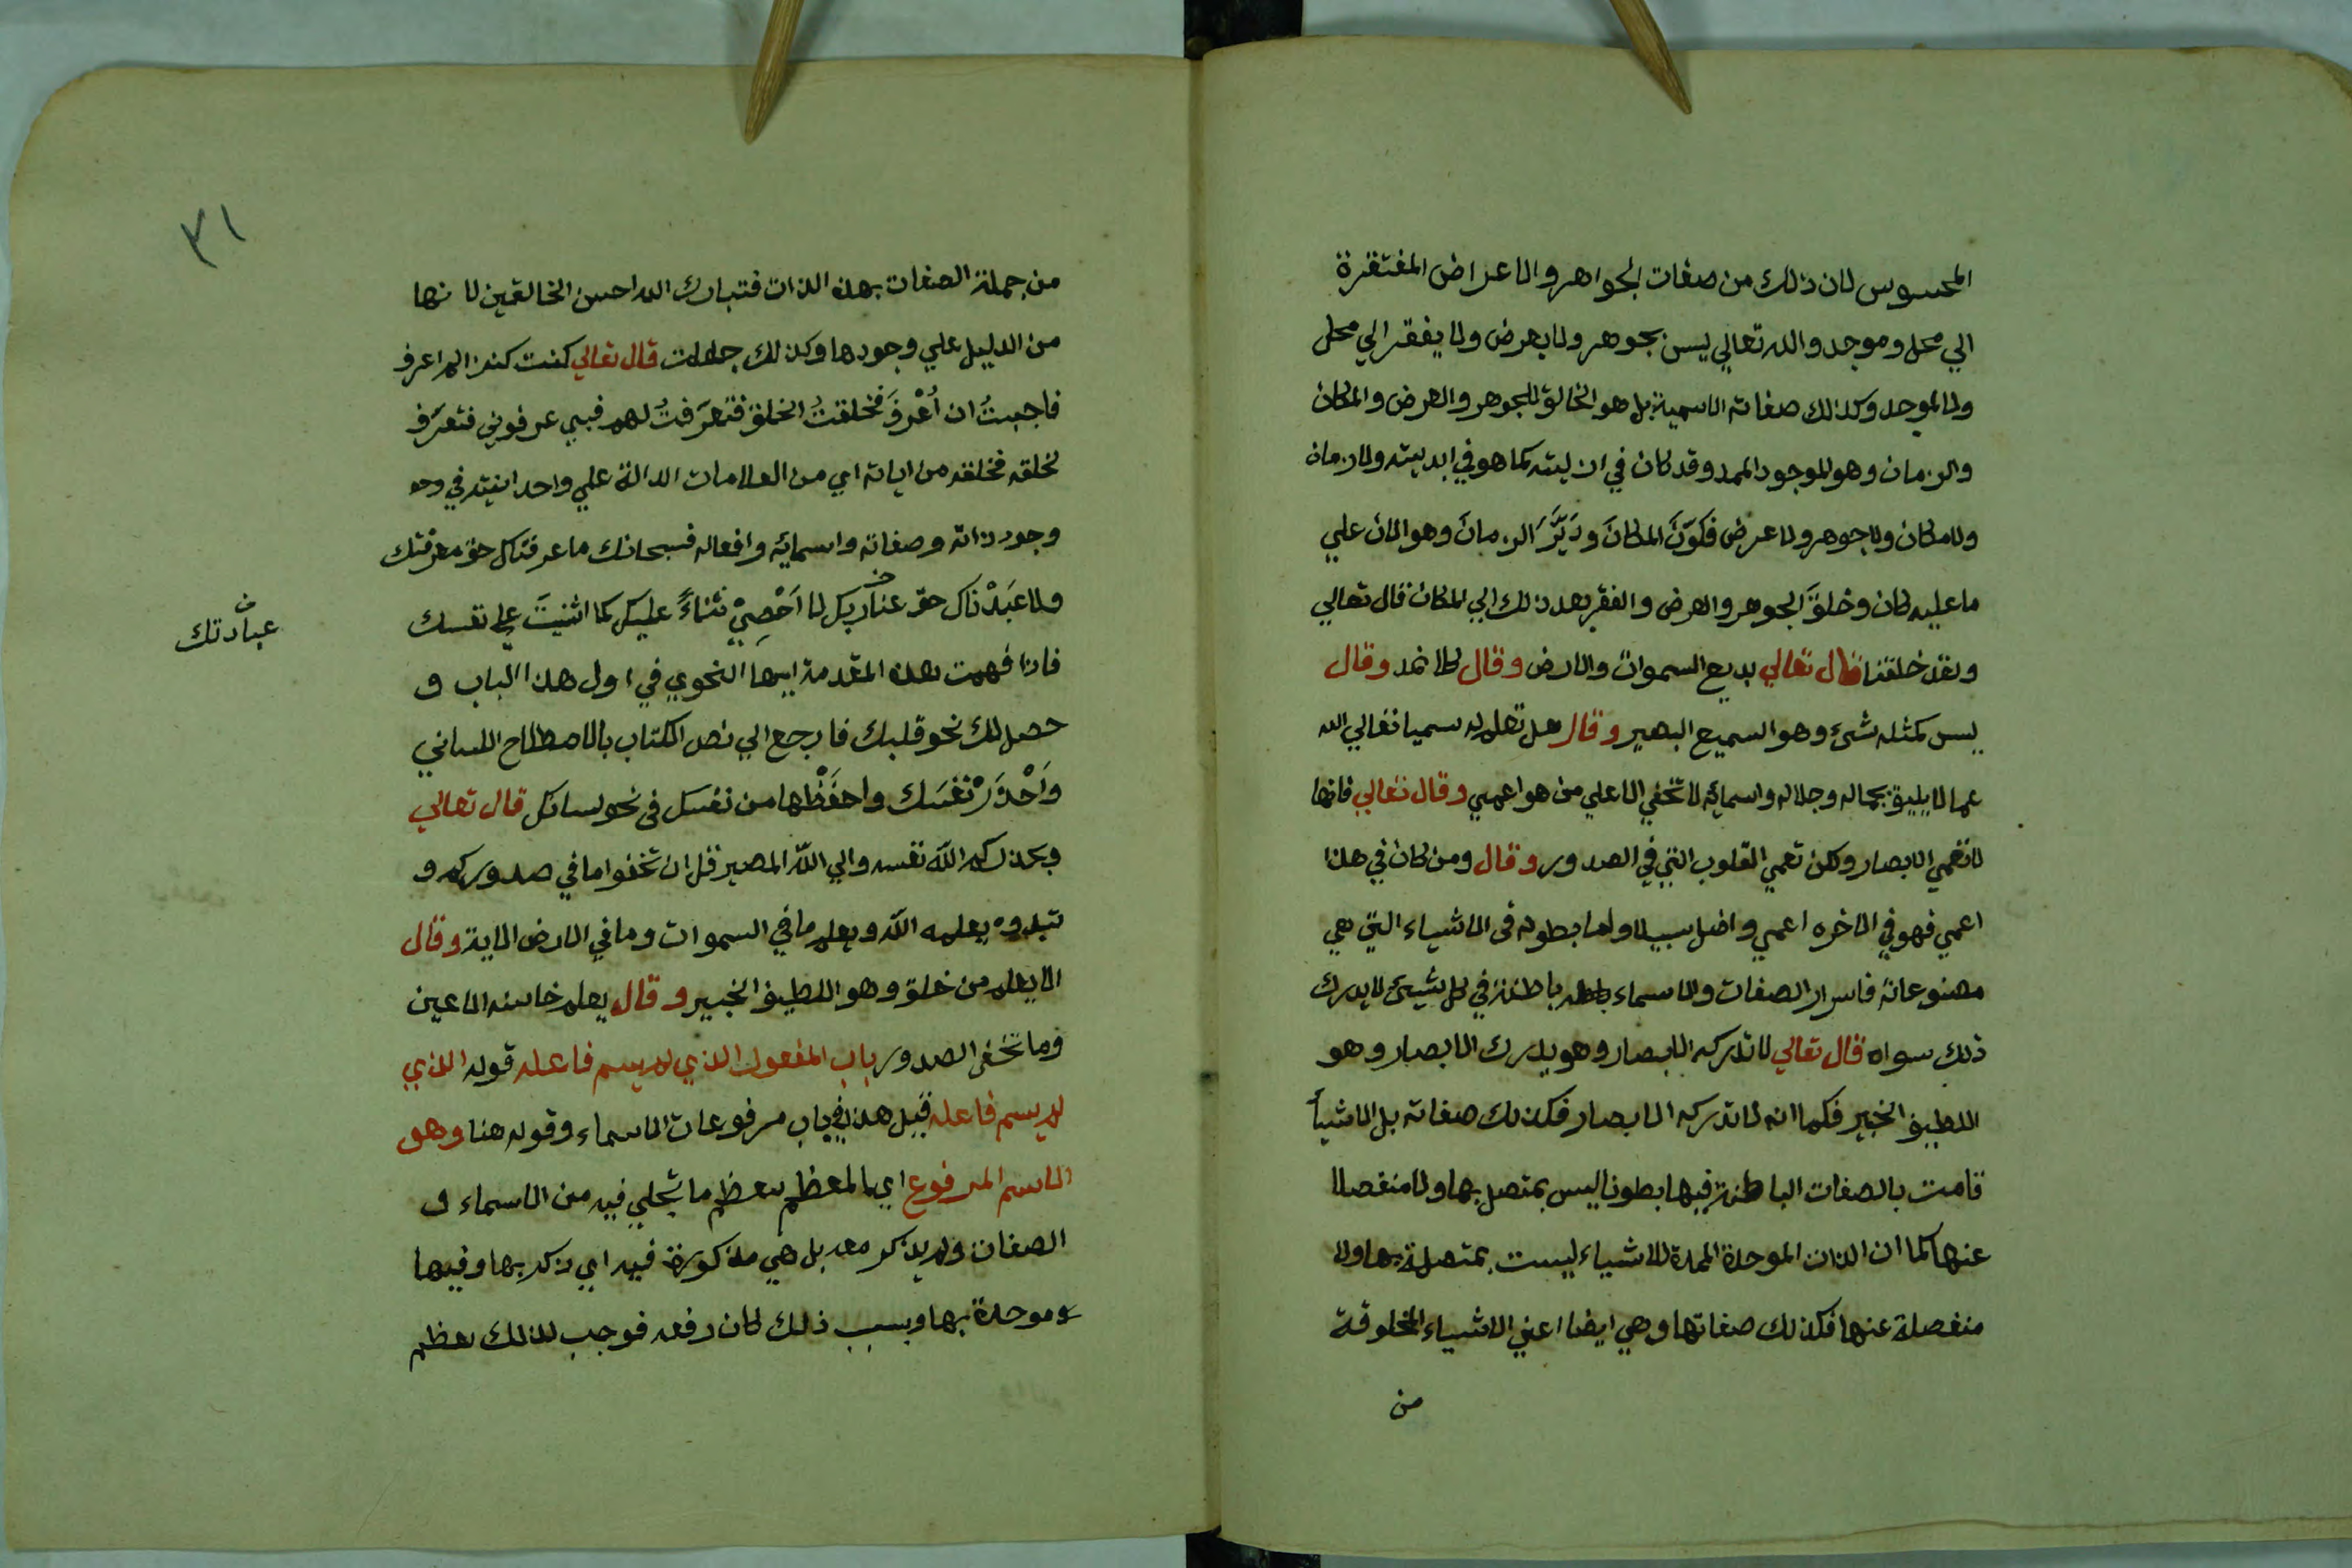 المحسوس لان ذلك من صفات الجواهر والاعراض المفتقرة
الي محل وموجد والله تعالي ليس بجوهر ولا بعرض ولا يفقر الي محل
ولا لموجد وكذلك صفاته الاسمية بل هو الخالق للجوهر والعرض والمكان
والزمان وهو الموجود الممد وقد كان في ازليته كما هو في ابديته ولا زمان
ولا مكان ولا جوهر ولا عرض فكوّنَ المكانَ ودَبَّرَ الزمانَ وهو الان علي
ما عليه كان وخلقَ الجوهر والعرض والفقر بعد ذلك الي المكان قال تعالي
ولقد خلقنا قال تعالي بديع السموات والارض وقال كلا نمد وقال
ليس كمثله شئ وهو السميع البصير وقال هل تعلم له سميا تعالي الله
عما لا يليق بجماله وجلاله واسمائه لا تخفي الا علي من هو اعمي وقال تعالي فانها
لا تعمي الابصار ولكن تعمي القلوب التي في الصدور وقال ومن كان في هذا
اعمي فهو في الاخره اعمي واضل سبيلا ولما بطونه في الاشياء التي هي
مصنوعاته فاسرار الصفات والاسماء باطنة في كل شيئ لا يدرك
ذلك سواه قال تعالي لا تدركه الابصار وهو يدرك الابصار وهو
اللطيف الخبير فكما انه لا تدركه الابصار فكذلك صفاته بل الاشيأ
قامت بالصفات الباطنة فيها بطونا ليس بمتصل بها ولا منفصلا
عنها كما ان الذات الموحدة الممدة للاشياء ليست بمتصلة بها ولا
منفصلة عنها فكذلك صفاتها وهي ايضا اعني الاشياء المخلوقة
من
٣١
من جملة الصفات بهذه الذات فتبارك الله احسن الخالقين لانها
من الدليل علي وجودها وكذلك جعلت قال تعالي كنت كنزا لم اعرف
فاحببتُ ان اُعْرفَ فخلقتُ الخلق فتعرَفتُ لهم فبي عرفوني فتعَرف
لخلقه فخلقه من اياته اي من العلامات الدالة علي واحدانيته في وجو
وجود ذاته وصفاته واسمائه وافعاله فسبحانك ما عرفناك حق معرفتك
ولا عبَدْناك حق عنا ربك لا اَحْصِيْ ثناءً عليك كما اثنيتَ علي نفسك
عبادتك
فاذا فهمت هذه المقدمة ايها النحوي في اول هذا الباب و
حصل لك نحو قلبك فارجع الي نص الكتاب بالاصطلاح اللساني
وَاحْذَرْ نفسَك واحفَظْها من نفسك في نحو لسانك قال تعالي
ويحذركم اللّه نفسه والي اللّه المصير قل ان تخفوا ما في صدوركم و
تبدوه يعلمه اللّه ويعلم ما في السموات وما في الارض الاية وقال
الا يعلم من خلق وهو اللطيف الخبير وقال يعلم خائنه الاعين
وما تخفي الصدور باب المفعول الذي لم يسم فاعله قوله الذي
لم يسم فاعله قبل هذا في باب مرفوعات الاسماء وقوله هنا وهو
الاسم المرفوع اي المعظم بعظم ما تجلي فيه من الاسماء و
الصفات ولم يذكر معه بل هي مذكورة فيه اي ذكر بها وفيها
وموحدة بها وبسبب ذلك كان رفعه فوجب لذلك بعظم